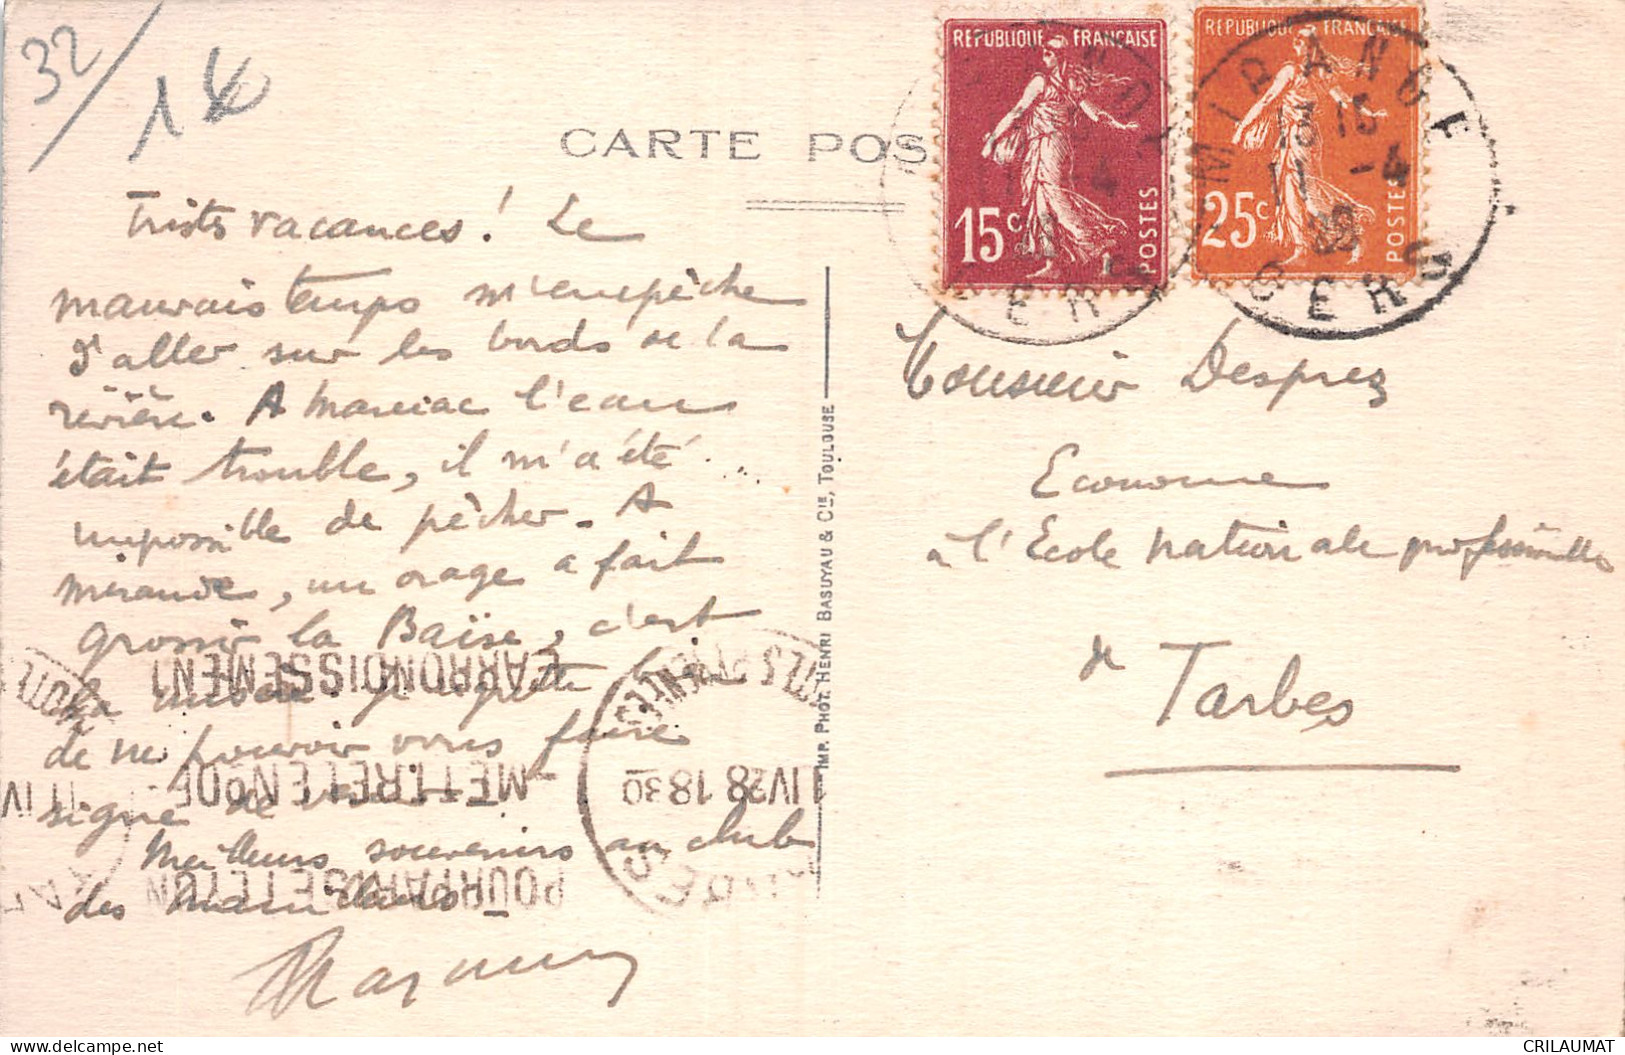 32/
14
CARTE POS
REPUBLIQUE FRANÇAISE
15c
POSTES
REPUBLIQUE FRANÇAISE
25c
POSTES
MIRANDE
13 15
11 -4
28
GERS
Trists vacances ! Le
mauvais temps m'empêche
d'aller sur les bords de la
rivière. A Marciac l'eau
était trouble, il m'a été
impossible de pêcher. A
Mirande, un orage a fait
grossir la Baïse, c'est
la je regrette
de ne pouvoir vous faire
signe de
Meilleurs souvenirs au club
des
Monsieur Desprez
Econome
à l'Ecole nationale professionnelle
de
Tarbes
IMP. PHOT. HENRI BASUYAU & CIE, TOULOUSE
POUR PARIS
METTRE LE N° DE
L'ARRONDISSEMENT
IV 28 18 30
CRILAUMAT